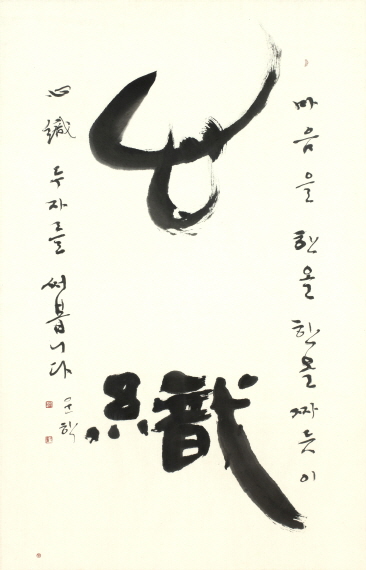 마음을 한올 한올 짜듯이
心織
心織 두자를 써봅니다